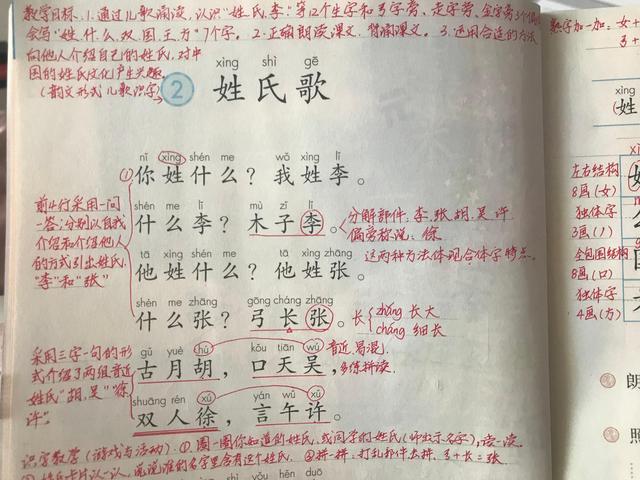 教学目标：1.通过儿歌诵读，认识"姓、氏、李"等12个生字和弓字旁、走字旁、金字旁3个偏旁
会写"姓、什、么、双、国、王、方"7个字。2.正确朗读课文，背诵课文。3.运用合适的方法
向他人介绍自己的姓氏，对中
国的姓氏文化产生兴趣。
（韵文形式儿歌识字）
xìng shì gē
2 姓氏歌
nǐ xìng shén me wǒ xìng lǐ
①你姓什么？我姓李。
shén me lǐ mù zǐ lǐ
什么李？木子李。
分解部件：李、张、胡、吴、许
偏旁称说：徐
这两种方法体现合体字特点。
前4行采用一问
一答；分别以自我
介绍和介绍他人
的方式引出姓氏
"李"和"张"
tā xìng shén me tā xìng zhāng
他姓什么？他姓张。
shén me zhāng gōng cháng zhāng
什么张？弓长张。
长 zhǎng 长大
cháng 细长
采用三字一句的形
式介绍了两组音近
姓氏"胡、吴""徐、
许"。
gǔ yuè hú kǒu tiān wú
古月胡，口天吴，
音近易混，
多练拼读。
shuāng rén xú yán wǔ xǔ
双人徐，言午许。
识字教学（游戏与活动）.①.圈一圈你知道的姓氏，或同学的姓氏（师出示名字），读一读。
②姓氏卡片认一认，说说谁的名字里含有这个姓氏。③拼一拼：打乱部件去拼，弓+长=张
shì hěn duō
数字加一加：女+
弓+
xìng
姓
左右结构
8画（女）
独体字
3画（丿）
全包围结构
8画（囗）
独体字
4画（方）
朗
照